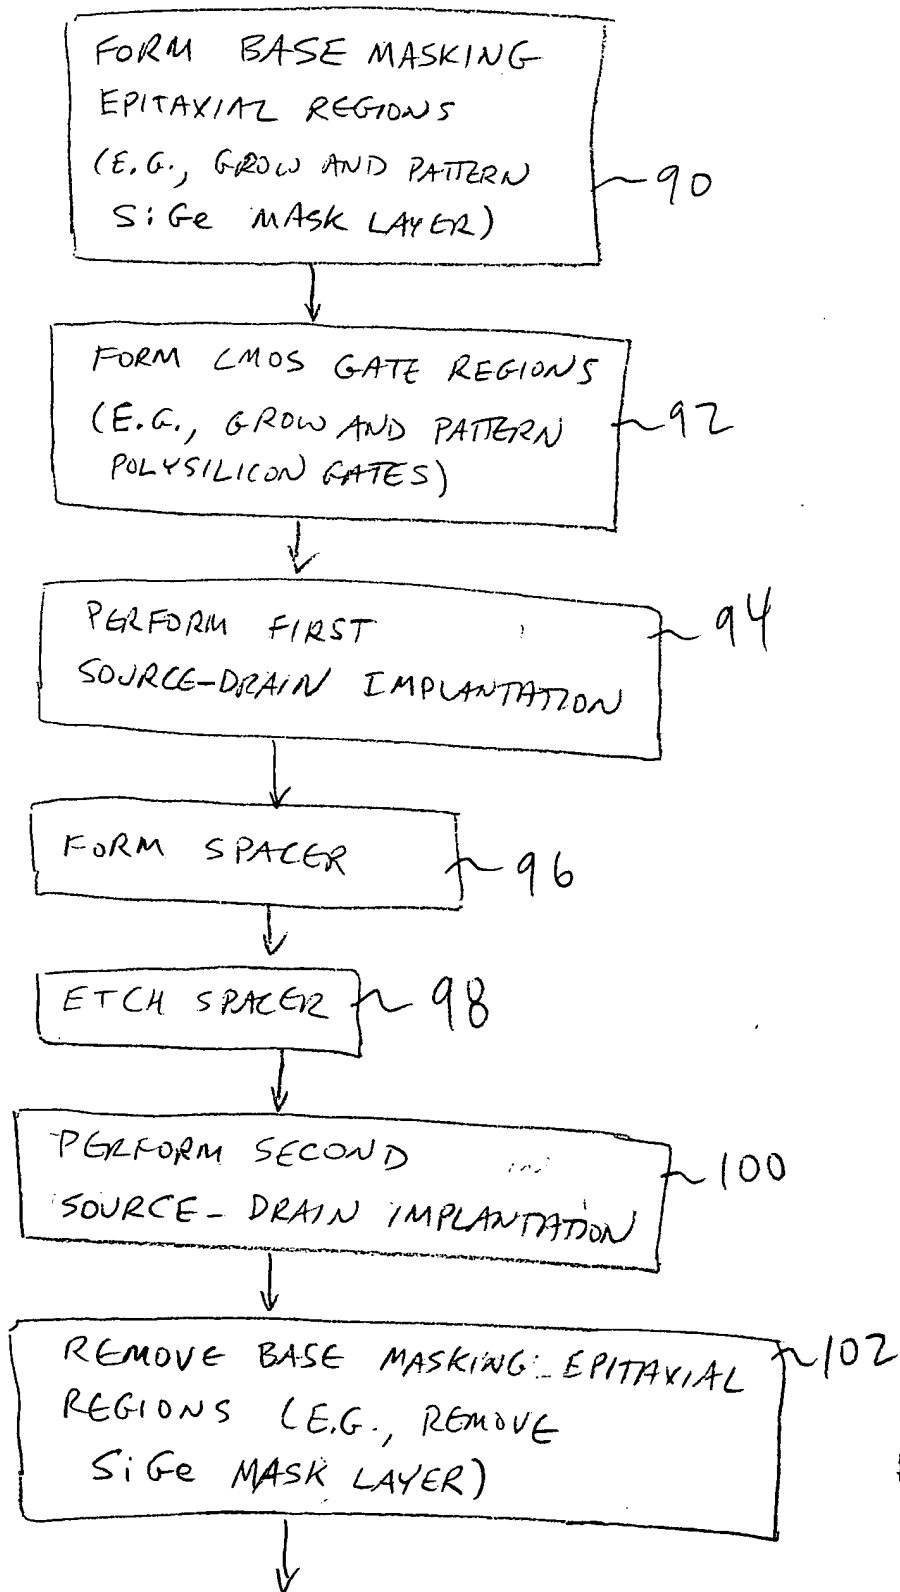 FORM BASE MASKING
EPITAXIAL REGIONS
(E.G., GROW AND PATTERN
SiGe MASK LAYER)
90
FORM CMOS GATE REGIONS
(E.G., GROW AND PATTERN
POLYSILICON GATES)
92
PERFORM FIRST
SOURCE-DRAIN IMPLANTATION
94
FORM SPACER
96
ETCH SPACER
98
PERFORM SECOND
SOURCE-DRAIN IMPLANTATION
100
REMOVE BASE MASKING EPITAXIAL
REGIONS (E.G., REMOVE
SiGe MASK LAYER)
102